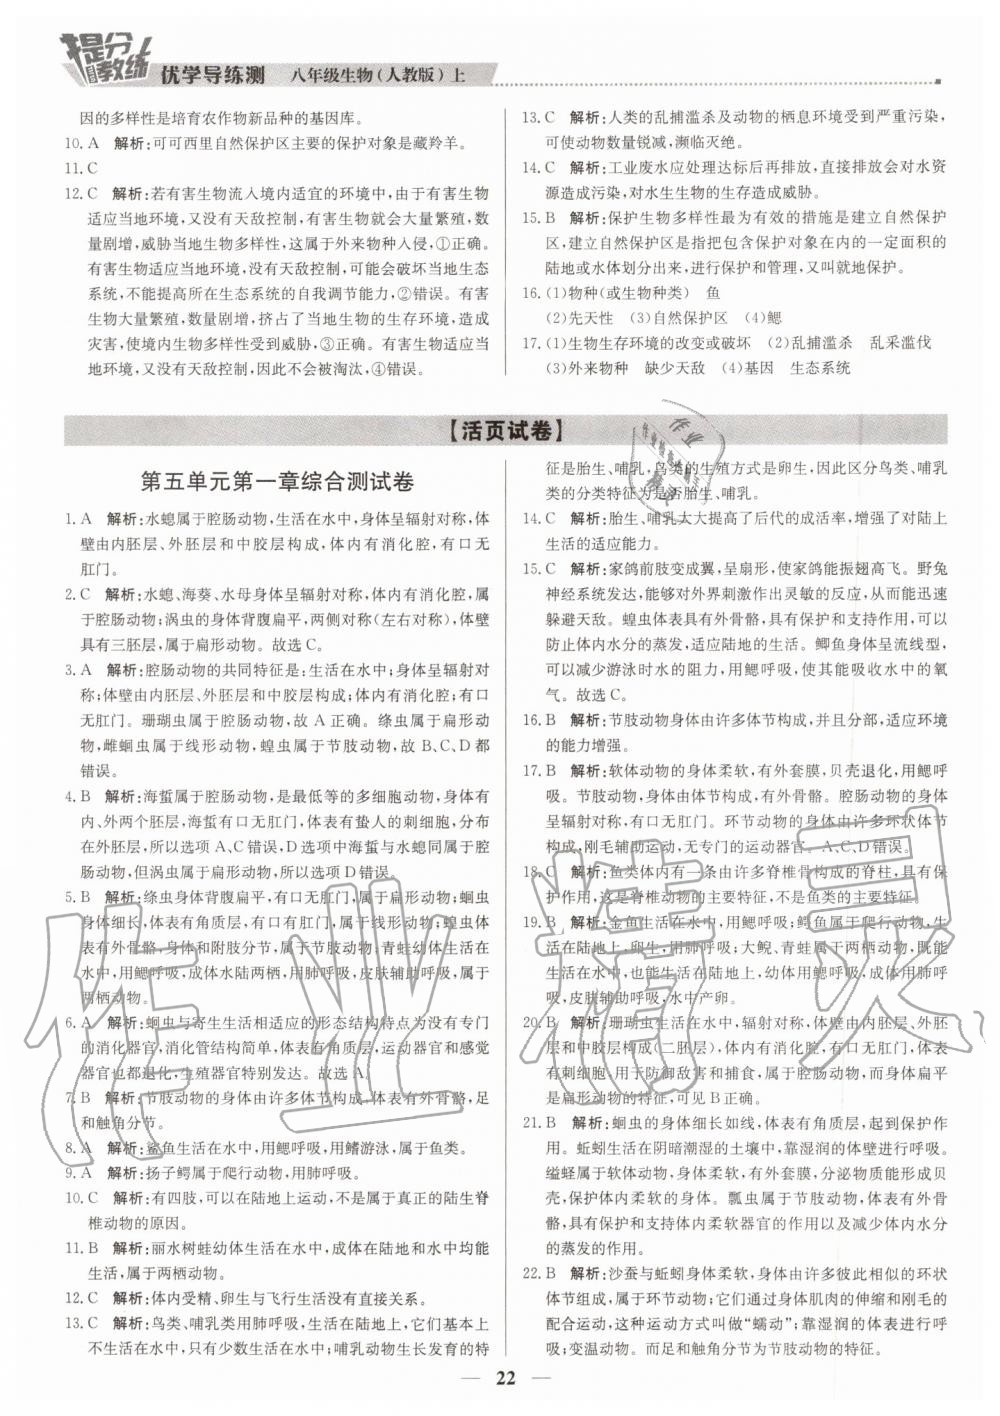 提分
教练
优学导练测 八年级生物(人教版)上
因的多样性是培育农作物新品种的基因库。
10. A 解析:可可西里自然保护区主要的保护对象是藏羚羊。
11. C
12. C 解析:若有害生物流入境内适宜的环境中,由于有害生物
适应当地环境,又没有天敌控制,有害生物就会大量繁殖,数
量剧增,威胁当地生物多样性,这属于外来物种入侵,①正确。
有害生物适应当地环境,没有天敌控制,可能会破坏当地生态
系统,不能提高所在生态系统的自我调节能力,②错误。有害
生物大量繁殖,数量剧增,挤占了当地生物的生存环境,造成
灾害,使当地生物多样性受到威胁,③正确。有害生物适应当
地环境,又没有天敌控制,因此不会被淘汰,④错误。
13. C 解析:人类的乱捕滥杀及动物的栖息环境受到严重污染,
可使动物数量锐减,濒临灭绝。
14. C 解析:工业废水应处理达标后再排放,直接排放会对水资
源造成污染,对水生生物的生存造成威胁。
15. B 解析:保护生物多样性最为有效的措施是建立自然保护
区,建立自然保护区是指把包含保护对象在内的一定面积的
陆地或水体划分出来,进行保护和管理,又叫就地保护。
16. (1)物种(或生物种类) 鱼
(2)先天性 (3)自然保护区 (4)鳃
17. (1)生物生存环境的改变或破坏 (2)乱捕滥杀 乱采滥伐
(3)外来物种 缺少天敌 (4)基因 生态系统
【活页试卷】
第五单元第一章综合测试卷
1. A 解析:水螅属于腔肠动物,生活在水中,身体呈辐射对称,体
壁由内胚层、外胚层和中胶层构成,体内有消化腔,有口无
肛门。
2. C 解析:水螅、海葵、水母身体呈辐射对称,体内有消化腔,属
于腔肠动物;涡虫的身体背腹扁平,两侧对称(左右对称),体壁
具有三胚层,属于扁形动物。故选C。
3. A 解析:腔肠动物的共同特征是:生活在水中;身体呈辐射对
称;体壁由内胚层、外胚层和中胶层构成;体内有消化腔;有口
无肛门。珊瑚虫属于腔肠动物,故 A 正确。绦虫属于扁形动
物,雌蛔虫属于线形动物,蝗虫属于节肢动物,故 B、C、D 都
错误。
4. B 解析:海蜇属于腔肠动物,是最低等的多细胞动物,身体有
内、外两个胚层,海蜇有口无肛门,体表有蜇人的刺细胞,分布
在外胚层,所以选项 A、C 错误,D 选项中海蜇与水螅同属于腔肠
动物,但涡虫属于扁形动物,所以选项 D 错误。
5. B 解析:绦虫身体背腹扁平,有口无肛门,属于扁形动物;蛔虫
身体细长,体表有角质层,有口有肛门,属于线形动物;蝗虫体
表有外骨骼,身体和附肢分节,属于节肢动物;青蛙幼体生活在
水中,用鳃呼吸,成体水陆两栖,用肺呼吸,皮肤辅助呼吸,属于
两栖动物。
6. A 解析:蛔虫与寄生生活相适应的形态结构特点为没有专门
的消化器官,消化管结构简单,体表有角质层,运动器官和感觉
器官也都退化,生殖器官特别发达。故选 A。
7. B 解析:节肢动物的身体由许多体节构成,体表有外骨骼,足
和触角分节。
8. A 解析:鲨鱼生活在水中,用鳃呼吸,用鳍游泳,属于鱼类。
9. A 解析:扬子鳄属于爬行动物,用肺呼吸。
10. C 解析:有四肢,可以在陆地上运动,不是属于真正的陆生脊
椎动物的原因。
11. B 解析:丽水树蛙幼体生活在水中,成体在陆地和水中均能
生活,属于两栖动物。
12. C 解析:体内受精、卵生与飞行生活没有直接关系。
13. C 解析:鸟类、哺乳类用肺呼吸;水生或陆生,它们基本上
不生活在水中,只有少数生活在水中;哺乳动物生长发育的特
征是胎生、哺乳,鸟类的生殖方式是卵生,因此区分鸟类、哺乳
类的分类特征为是否胎生、哺乳。
14. C 解析:胎生、哺乳大大提高了后代的成活率,增强了对陆上
生活的适应能力。
15. C 解析:家鸽前肢变成翼,呈扇形,使家鸽能振翅高飞。野兔
神经系统发达,能够对外界刺激作出灵敏的反应,从而能迅速
躲避天敌。蝗虫体表具有外骨骼,具有保护和支持作用,可以
防止体内水分的蒸发,适应陆地的生活。鲫鱼身体呈流线型,
可以减少游泳时水的阻力,用鳃呼吸,使其能吸收水中的氧
气。故选 C。
16. B 解析:节肢动物身体由许多体节构成,并且分部,适应环境
的能力增强。
17. B 解析:软体动物的身体柔软,有外套膜,贝壳退化,用鳃呼
吸。节肢动物的身体由体节构成,有外骨骼。腔肠动物的身体
呈辐射对称,有口无肛门。环节动物的身体由许多环状体节
构成,刚毛辅助运动,无专门的运动器官。A、C、D错误。
18. C 解析:鱼类体内有一条由许多脊椎骨构成的脊柱,具有保
护作用,这是脊椎动物的主要特征,不是鱼类的主要特征。
19. B 解析:金鱼生活在水中,用鳃呼吸;鳄鱼属于爬行动物,生
活在陆地上,卵生,用肺呼吸;大鲵、青蛙属于两栖动物,既能
生活在水中,也能生活在陆地上,幼体用鳃呼吸,成体用肺呼
吸,皮肤辅助呼吸,水中产卵。
20. B 解析:珊瑚虫生活在水中,辐射对称,体壁由内胚层、外胚
层和中胶层构成(二胚层),体内有消化腔,有口无肛门,体表
有刺细胞,用于防御敌害和捕食,属于腔肠动物,而身体扁平
是扁形动物的特征,可见 B 正确。
21. B 解析:蛔虫的身体细长如线,体表有角质层,起到保护作
用。蚯蚓生活在阴暗潮湿的土壤中,靠湿润的体壁进行呼吸。
缢蛏属于软体动物,身体柔软,具有外套膜,分泌物质能形成贝
壳,保护体内柔软的身体。瓢虫属于节肢动物,体表有外骨
骼,具有保护和支持体内柔软器官的作用以及减少体内水分
的蒸发的作用。
22. B 解析:沙蚕与蚯蚓身体柔软,身体由许多彼此相似的环状
体节组成,属于环节动物;它们通过身体肌肉的伸缩和刚毛的
配合运动,这种运动方式叫做“蠕动”;靠湿润的体表进行呼
吸;变温动物。而足和触角分节为节肢动物的主要特征。
22
作业精灵